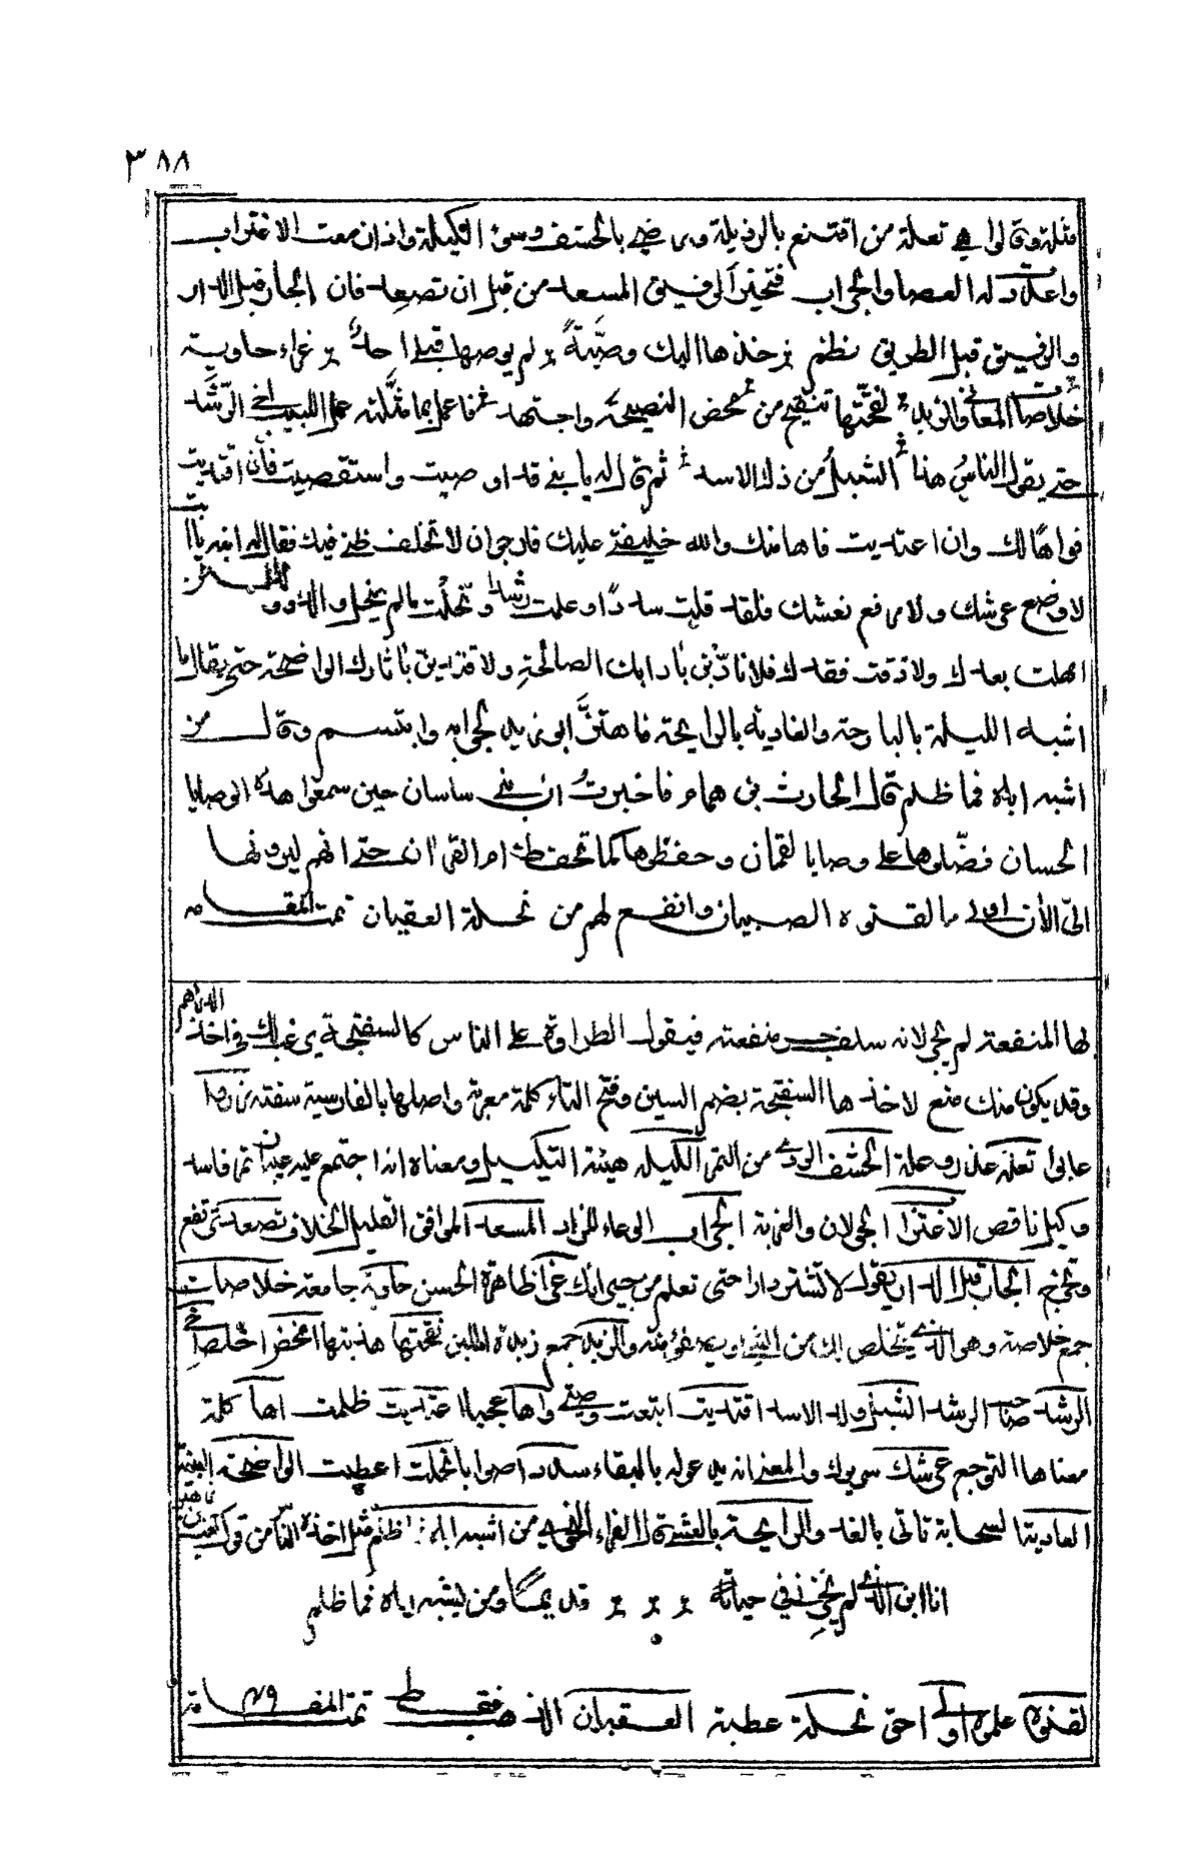 ٣٨٨
مثله وقالوا هي تعلة من اقتنع بالرذيلة ورضي بالحشف وسوء الكيلة واذا ازمعت الاغتراب
واعددت له العصا والجراب فتخير الرفيق المسعد من قبل ان تصعد فان الجار قبل الدار
والرفيق قبل الطريق نظم خذها اليك وصية لم يوصها قبلي احد غراء حاوية
خلاصات المعاني والزبد نقحتها تنقيح من محض النصيحة واجتهد فاعمل بما مثلته عمل اللبيب اخي الرشد
حتى يقول الناس هذا الشبل من ذاك الاسد ثم قال له يا بني قد اوصيت واستقصيت فان اقتديت
فواها لك وان اعتديت فاها منك والله خليفتي عليك فارجو ان لا تخلف ظني فيك فقال له ابنه يا ابت
لا وضع عرشك ولا رفع نعشك فلقد قلت سددا وعلمت رشدا ونحلت ما لم ينحل والد ولدا ولئن
امهلت بعدك ولا ذقت فقدك فلاتادبن بادابك الصالحة ولاقتدين باثارك الواضحة حتى يقال ما
اشبه الليلة بالبارحة والغادية بالرايحة فاهتز ابو زيد لجوابه وابتسم وقال من
اشبه اباه فما ظلم قال الحارث بن همام فاخبرت ان بني ساسان حين سمعوا هذه الوصايا
الحسان فضلوها على وصايا لقمان وحفظوها كما تحفظ ام القران حتى انهم ليرونها
الى الآن اولى ما لقنوه الصبيان وانفع لهم من نحلة العقيان تمت المقامه
لها المنفعة لم يجز لانه سلف جر منفعته فيقول الطراوة على الناس كالسفتجة يرغب لك في اخذ الدراهم
وقد يكون منك منع لاخذها السفتجة بضم السين وفتح التاء كلمة معربة واصلها بالفارسية سفته
عابوا تعلة عذر وعلة الحشف الردي من التمر الكيله هيئة التكييل ومعناه اذا اجتمع عليه عيبان تمر فاسد
وكيل ناقص الاغتراب الجولان والغربة الجراب الوعاء للزاد المسعد الموافق القليل الخلاف تصعد ترتفع
وتخرج الجار قبل الدار يقول لا تشتر دارا حتى تعلم من جيرانك غرا ظاهرة الحسن حاوية جامعة خلاصات
جمع خلاصة وهو الذي يتخلص لك من الشيء والزبد جمع زبدة اللبن نقحتها هذبتها امحض اخلص اخي
الرشد صاحب الرشد الشبل ولد الاسد اقتديت اتبعت وصيتي واها عجبا اعتديت ظلمت اها كلمة
معناها التوجع عرشك سريرك والمعنى انه يدعو له بالبقاء سددا صوابا نحلت اعطيت الواضحة البينة
الغادية السحابة تاتي بالغد والرايحة بالعشي من اشبه اباه فما ظلم مثل اخذه الناس من قول كعب بن زهير
انا ابن الذي لم يخزني في حياته قديما ومن يشبه اباه فما ظلم
لقنوه علموه اولى احق نحلة عطية العقيان الذهب فقط تمت المقامة ٤٩